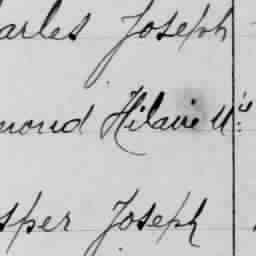 arles Joseph
mond Hilaire Mc
sper Joseph